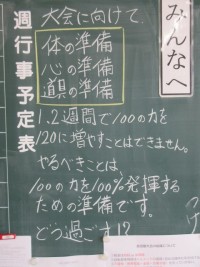 みんなへ
週行事予定表
大会に向けて、
体の準備
心の準備
道具の準備
1.2週間で100の力を
120に増やすことはできません。
やるべきことは、
100の力を100%発揮する
ための準備です。
どう過ごす!?